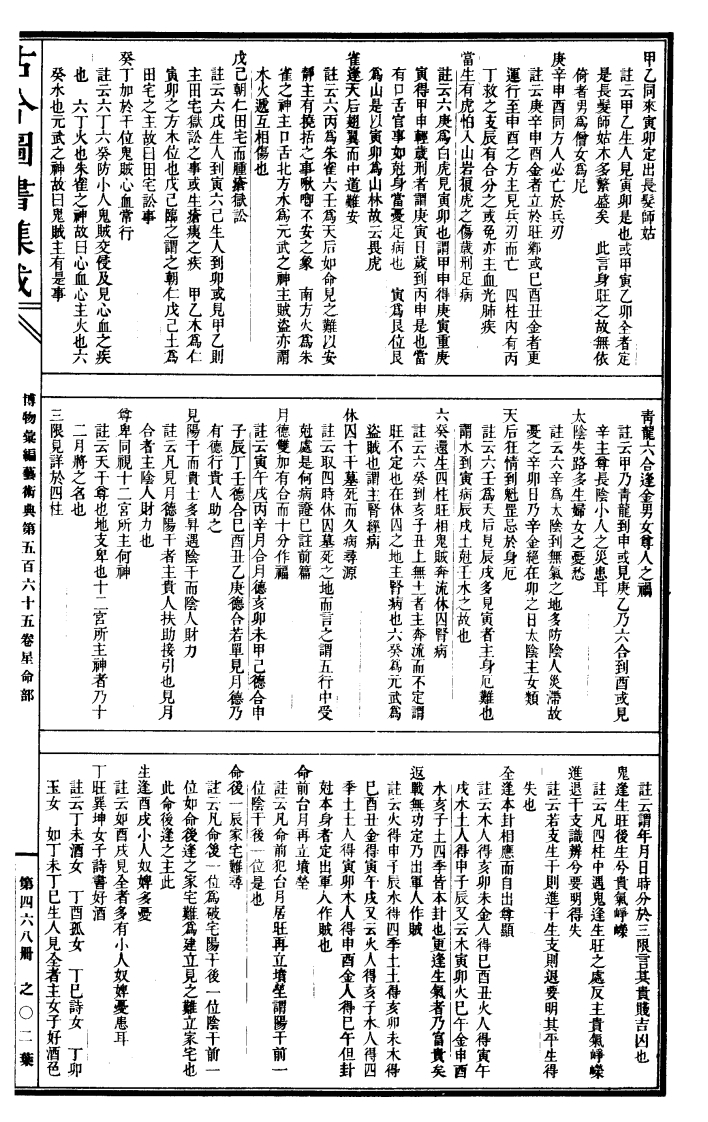 甲乙同來寅卯定出長髮師姑
註云甲乙生人見寅卯是也或甲寅乙卯全者定
是長髮師姑木多繁盛矣　此言身旺之故無依
倚者男爲僧女爲尼
庚辛申酉同方人必亡於兵刃
註云庚辛申酉金者立於旺鄉或巳酉丑金者更
運行至申酉之方主見兵刃而亡　四柱內有丙
丁救之支辰有合分之或免亦主血光肺疾
當生有虎怕入山岩狠虎之傷歲刑足病
註云六庚爲白虎見寅卯也謂甲申得庚寅重庚
寅得甲申輕歲刑者謂庚寅日歲到丙申是也當
有口舌官事如尅身當憂足病也　寅爲艮位艮
爲山是以寅卯爲山林故云畏虎
雀逢天后翅翼而中道難安
註云六丙爲朱雀六壬爲天后如命見之難以安
靜主有撓括之事啾唧不安之象　南方火爲朱
雀之神主口舌北方水爲元武之神主賊盜亦謂
水火遞互相傷也
戊己朝仁田宅而腫瘡獄訟
註云六戊生人到寅六己生人到卯或見甲乙則
主田宅獄訟之事或生瘡痍之疾　甲乙木爲仁
寅卯之方木位也戊己臨之謂之朝仁戊己土爲
田宅之主故曰田宅訟事
癸丁加於干位鬼賊心血常行
註云六丁六癸防小人鬼賊交侵及見心血之疾
也　六丁火也朱雀之神故曰心血心主火也六
癸水也元武之神故曰鬼賊主有是事
青龍六合逢金男女尊人之禍
註云甲乃青龍到申或見庚乙乃六合到酉或見
辛主尊長陰小人之災患耳
太陰失路多生婦女之憂愁
註云六辛爲太陰到無氣之地多防陰人災滯故
憂之辛卯日乃辛金絕在卯之日太陰主女類
天后狂情到魁罡忌於身厄
註云六壬爲天后見辰戌多見寅者主身厄難也
謂水到寅病辰戌土尅壬水之故也
六癸還生四柱旺相鬼賊奔流休囚腎病
註云六癸到亥子丑上無土者主奔流而不定謂
旺不定也在休囚之地主腎病也六癸爲元武爲
盜賊也謂主腎經病
休囚十干墓死而久病尋源
註云取四時休囚墓死之地而言之謂五行中受
尅處是何病證巳註前篇
月德雙加有合而十分作福
註云寅午戌丙辛月合月德亥卯未甲己德合申
子辰丁壬德合巳酉丑乙庚德合若單見月德乃
有德行貴人助之
見陽干而貴士多昇遇陰干而陰人財力
註云凡見月德陽干者主貴人扶助接引也見月
合者主陰人財力也
尊卑同視十二宮所主何神
註云天干尊也地支卑也十二宮所主神者乃十
二月將之名也
三限見詳於四柱
註云謂年月日時分於三限言其貴賤吉凶也
鬼逢生旺後生兮貴氣崢嶸
註云凡四柱中遇鬼逢生旺之處反主貴氣崢嶸
進退干支識辨兮要明得失
註云若支生干則進干生支則退要明其平生得
失也
全逢本卦相應而自出尊顯
註云木人得亥卯未金人得巳酉丑火人得寅午
戌木土人得申子辰又云木寅卯火巳午金申酉
水亥子土四季皆本卦也更逢生氣者乃富貴矣
返戰無功定乃出軍人作賊
註云火得申子辰木得四季土土得亥卯未木得
巳酉丑金得寅午戌又云火人得亥子木人得四
季土土人得寅卯木人得申酉金人得巳午但卦
尅本身者定出軍人作賊也
命前台月再立墳塋
註云凡命前犯台月居旺再立墳塋謂陽干前一
位陰干後一位是也
命後一辰家宅難尋
註云凡命後一位爲破宅陽干後一位陰干前一
位如命後逢之家宅難爲建立見之難立家宅也
此命後逢之主此
生逢酉戌小人奴婢多憂
註云如酉戌見全者多有小人奴婢憂患耳
丁旺異坤女子詩書好酒
註云丁未酒女　丁酉孤女　丁巳詩女　丁卯
玉女　如丁未丁巳生人見全者主女子好酒色
古今圖書集成
博物彙編藝術典第五百六十五卷星命部
第四六八冊　之〇二葉